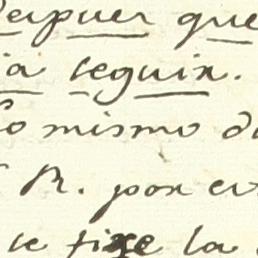 Despues que
ia seguir.
lo mismo d
R. por ev
se fixe la